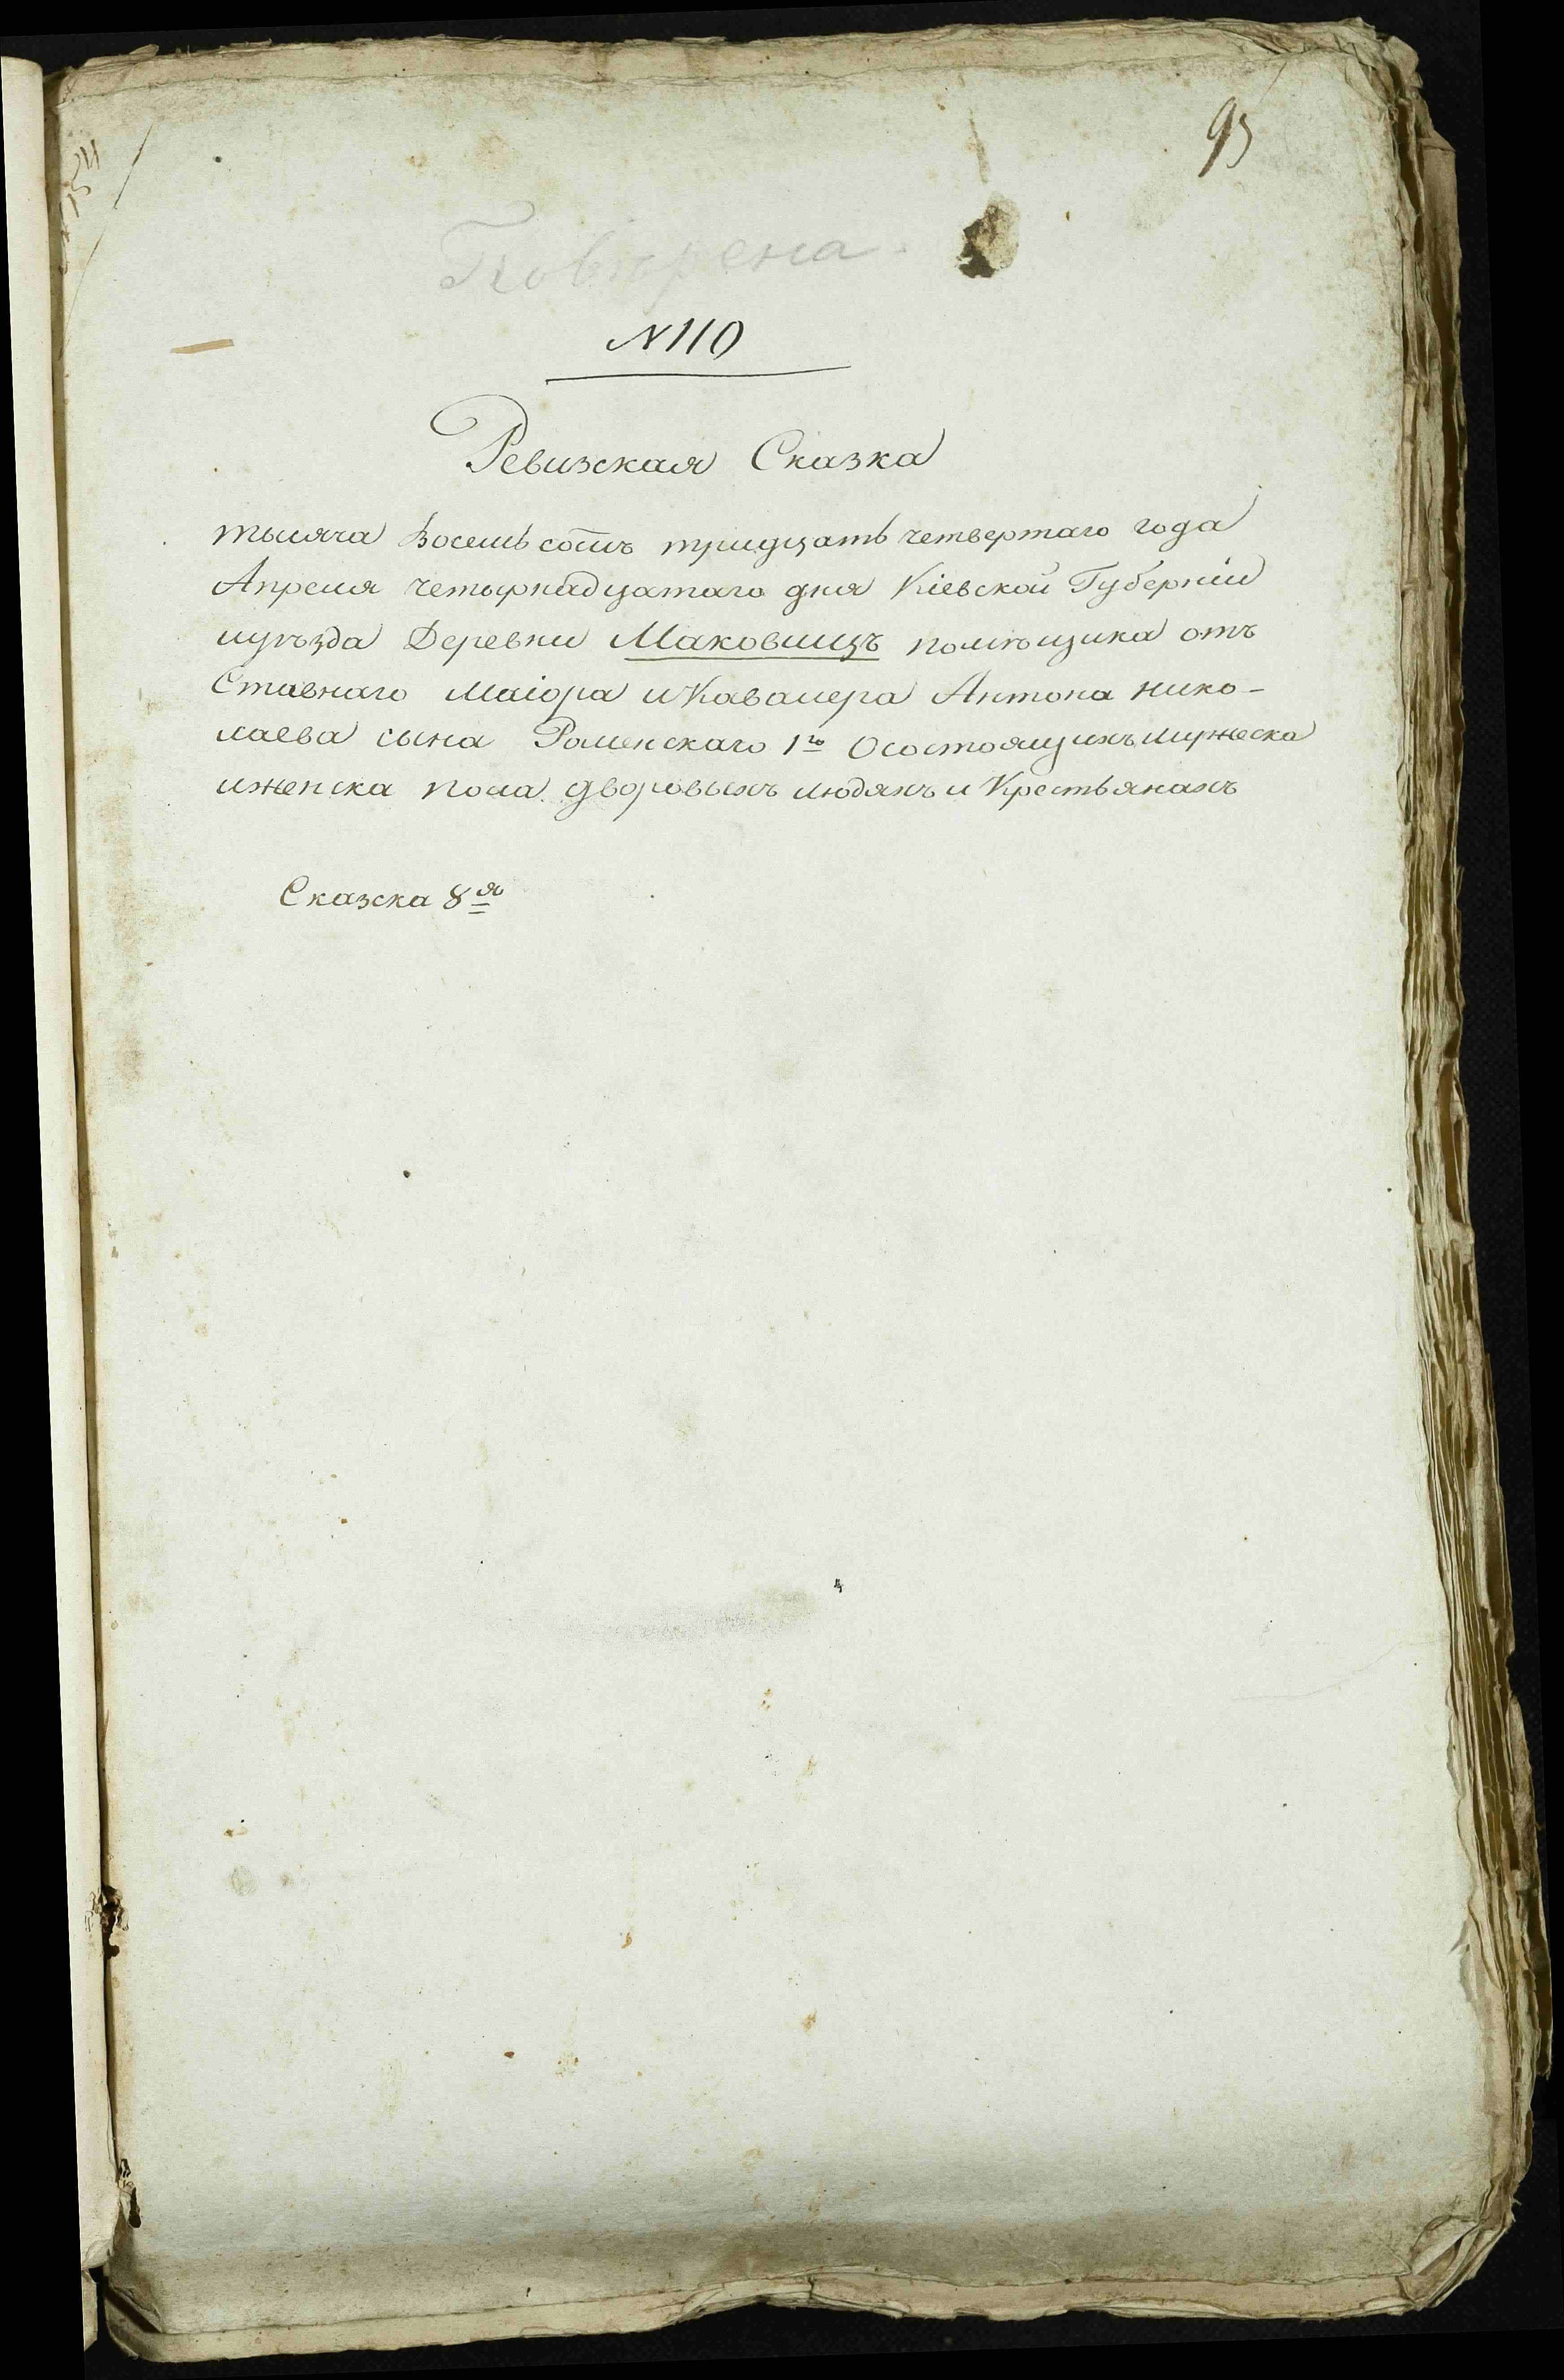 95
Повторена.
N 110
Ревизская Сказка
тысяча восемь сотъ тридцать четвертаго года
Апреля четырнадцатаго дня Кіевской Губерніи
иуѣзда Деревни Маковищъ помѣщика отъ
Ставнаго Маіора и Кавалера Антона Нико-
лаева сына Роменскаго 1го О состоящихъ мужеска
иженска пола дворовыхъ людяхъ и Крестьянахъ
Сказска 8я